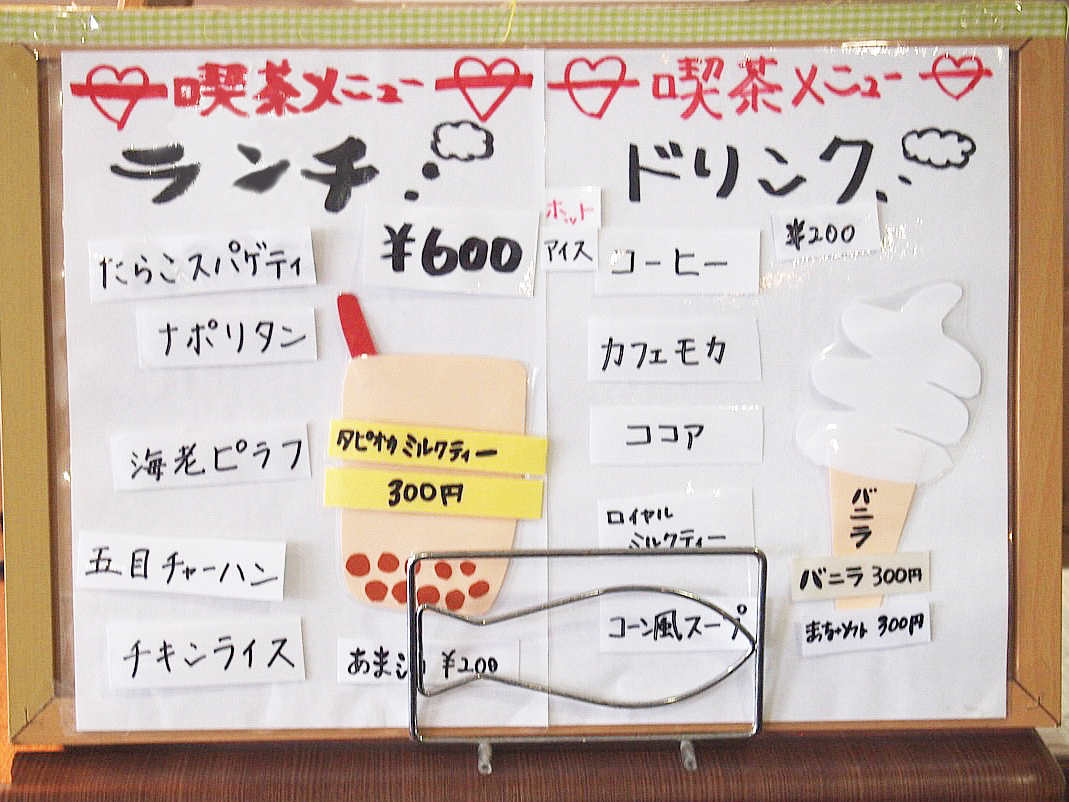 喫茶メニュー
ランチ
¥600
たらこスパゲティ
ナポリタン
海老ピラフ
五目チャーハン
チキンライス
タピオカミルクティー
300円
あまざ ¥200
喫茶メニュー
ドリンク
ホット
アイス
¥200
コーヒー
カフェモカ
ココア
ロイヤル
ミルクティー
コーン風スープ
バニラ
バニラ 300円
まっちゃソフト 300円